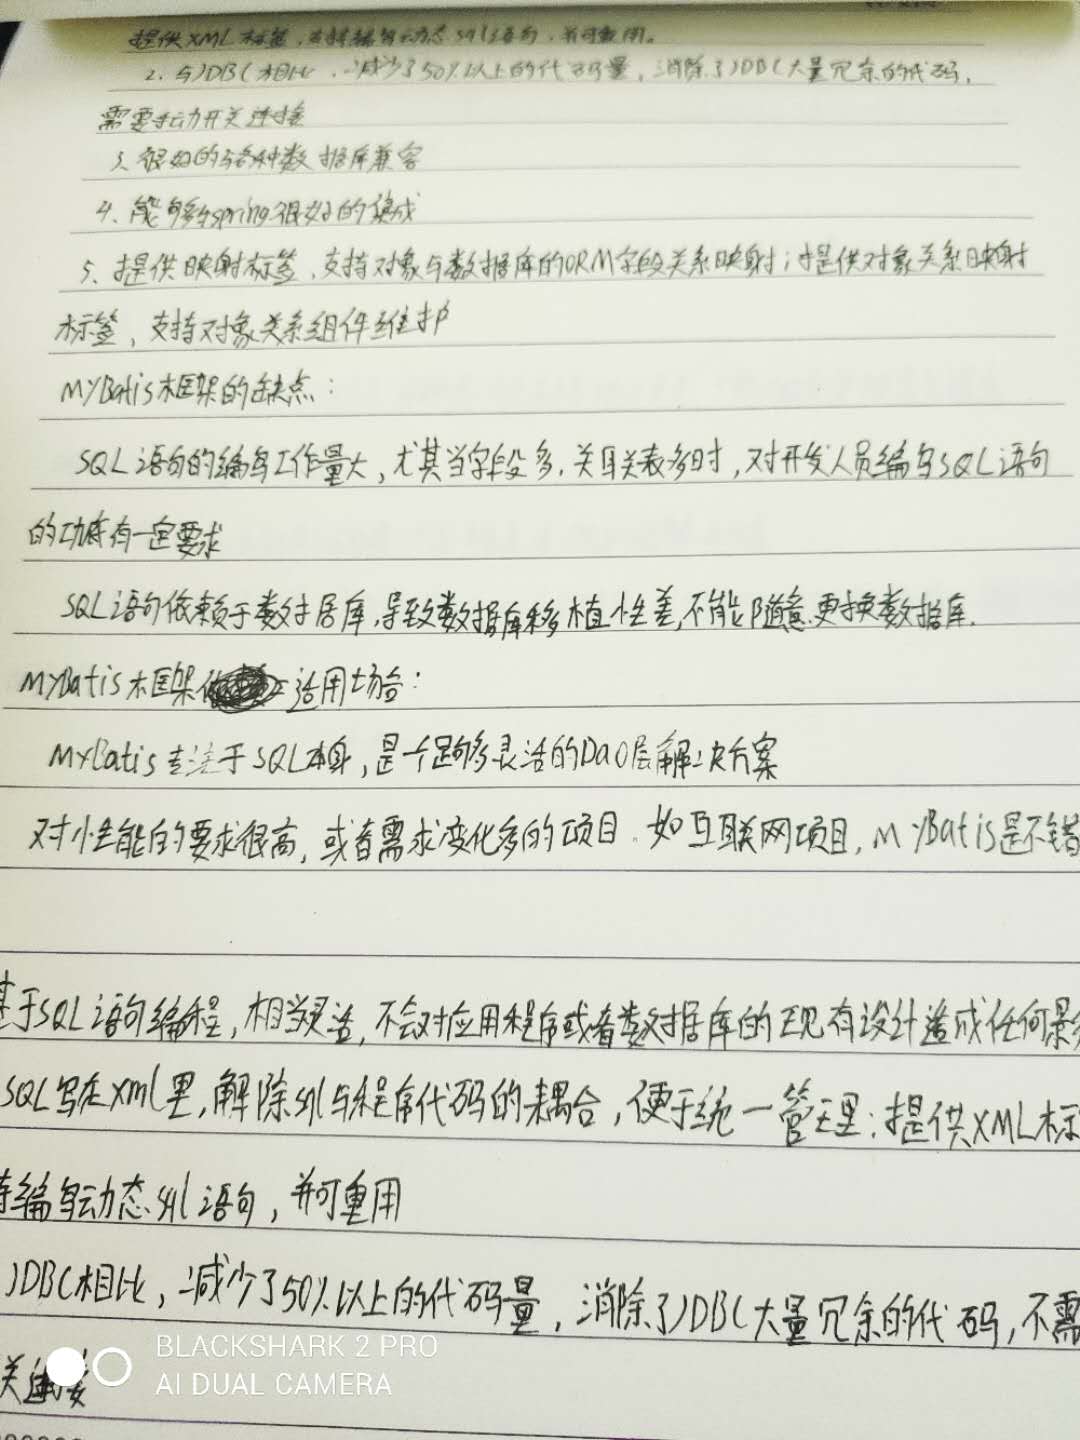 提供XML标签,支持编写动态sql语句,并可重用。
2、与JDBC相比,减少了50%以上的代码量,消除了JDBC大量冗余的代码,
需要手动开关连接
3、很好的与各种数据库兼容
4、能够与spring很好的集成
5、提供映射标签,支持对象与数据库的ORM字段关系映射;提供对象关系映射
标签,支持对象关系组件维护
MyBatis框架的缺点:
SQL语句的编写工作量大,尤其当字段多,关联关表多时,对开发人员编写SQL语句
的功底有一定要求
SQL语句依赖于数据库,导致数据库移植性差,不能随意更换数据库.
MyBatis框架 适用场合:
MyBatis专注于SQL本身,是一个足够灵活的DAO层解决方案
对性能的要求很高,或者需求变化多的项目,如互联网项目,MyBatis是不错
基于SQL语句编程,相当灵活,不会对应用程序或者数据库的现有设计造成任何影
SQL写在xml里,解除sql与程序代码的耦合,便于统一管理;提供XML标
持编写动态sql语句,并可重用
JDBC相比,减少了50%以上的代码量,消除了JDBC大量冗余的代码,不需
关连接
BLACKSHARK 2 PRO
AI DUAL CAMERA